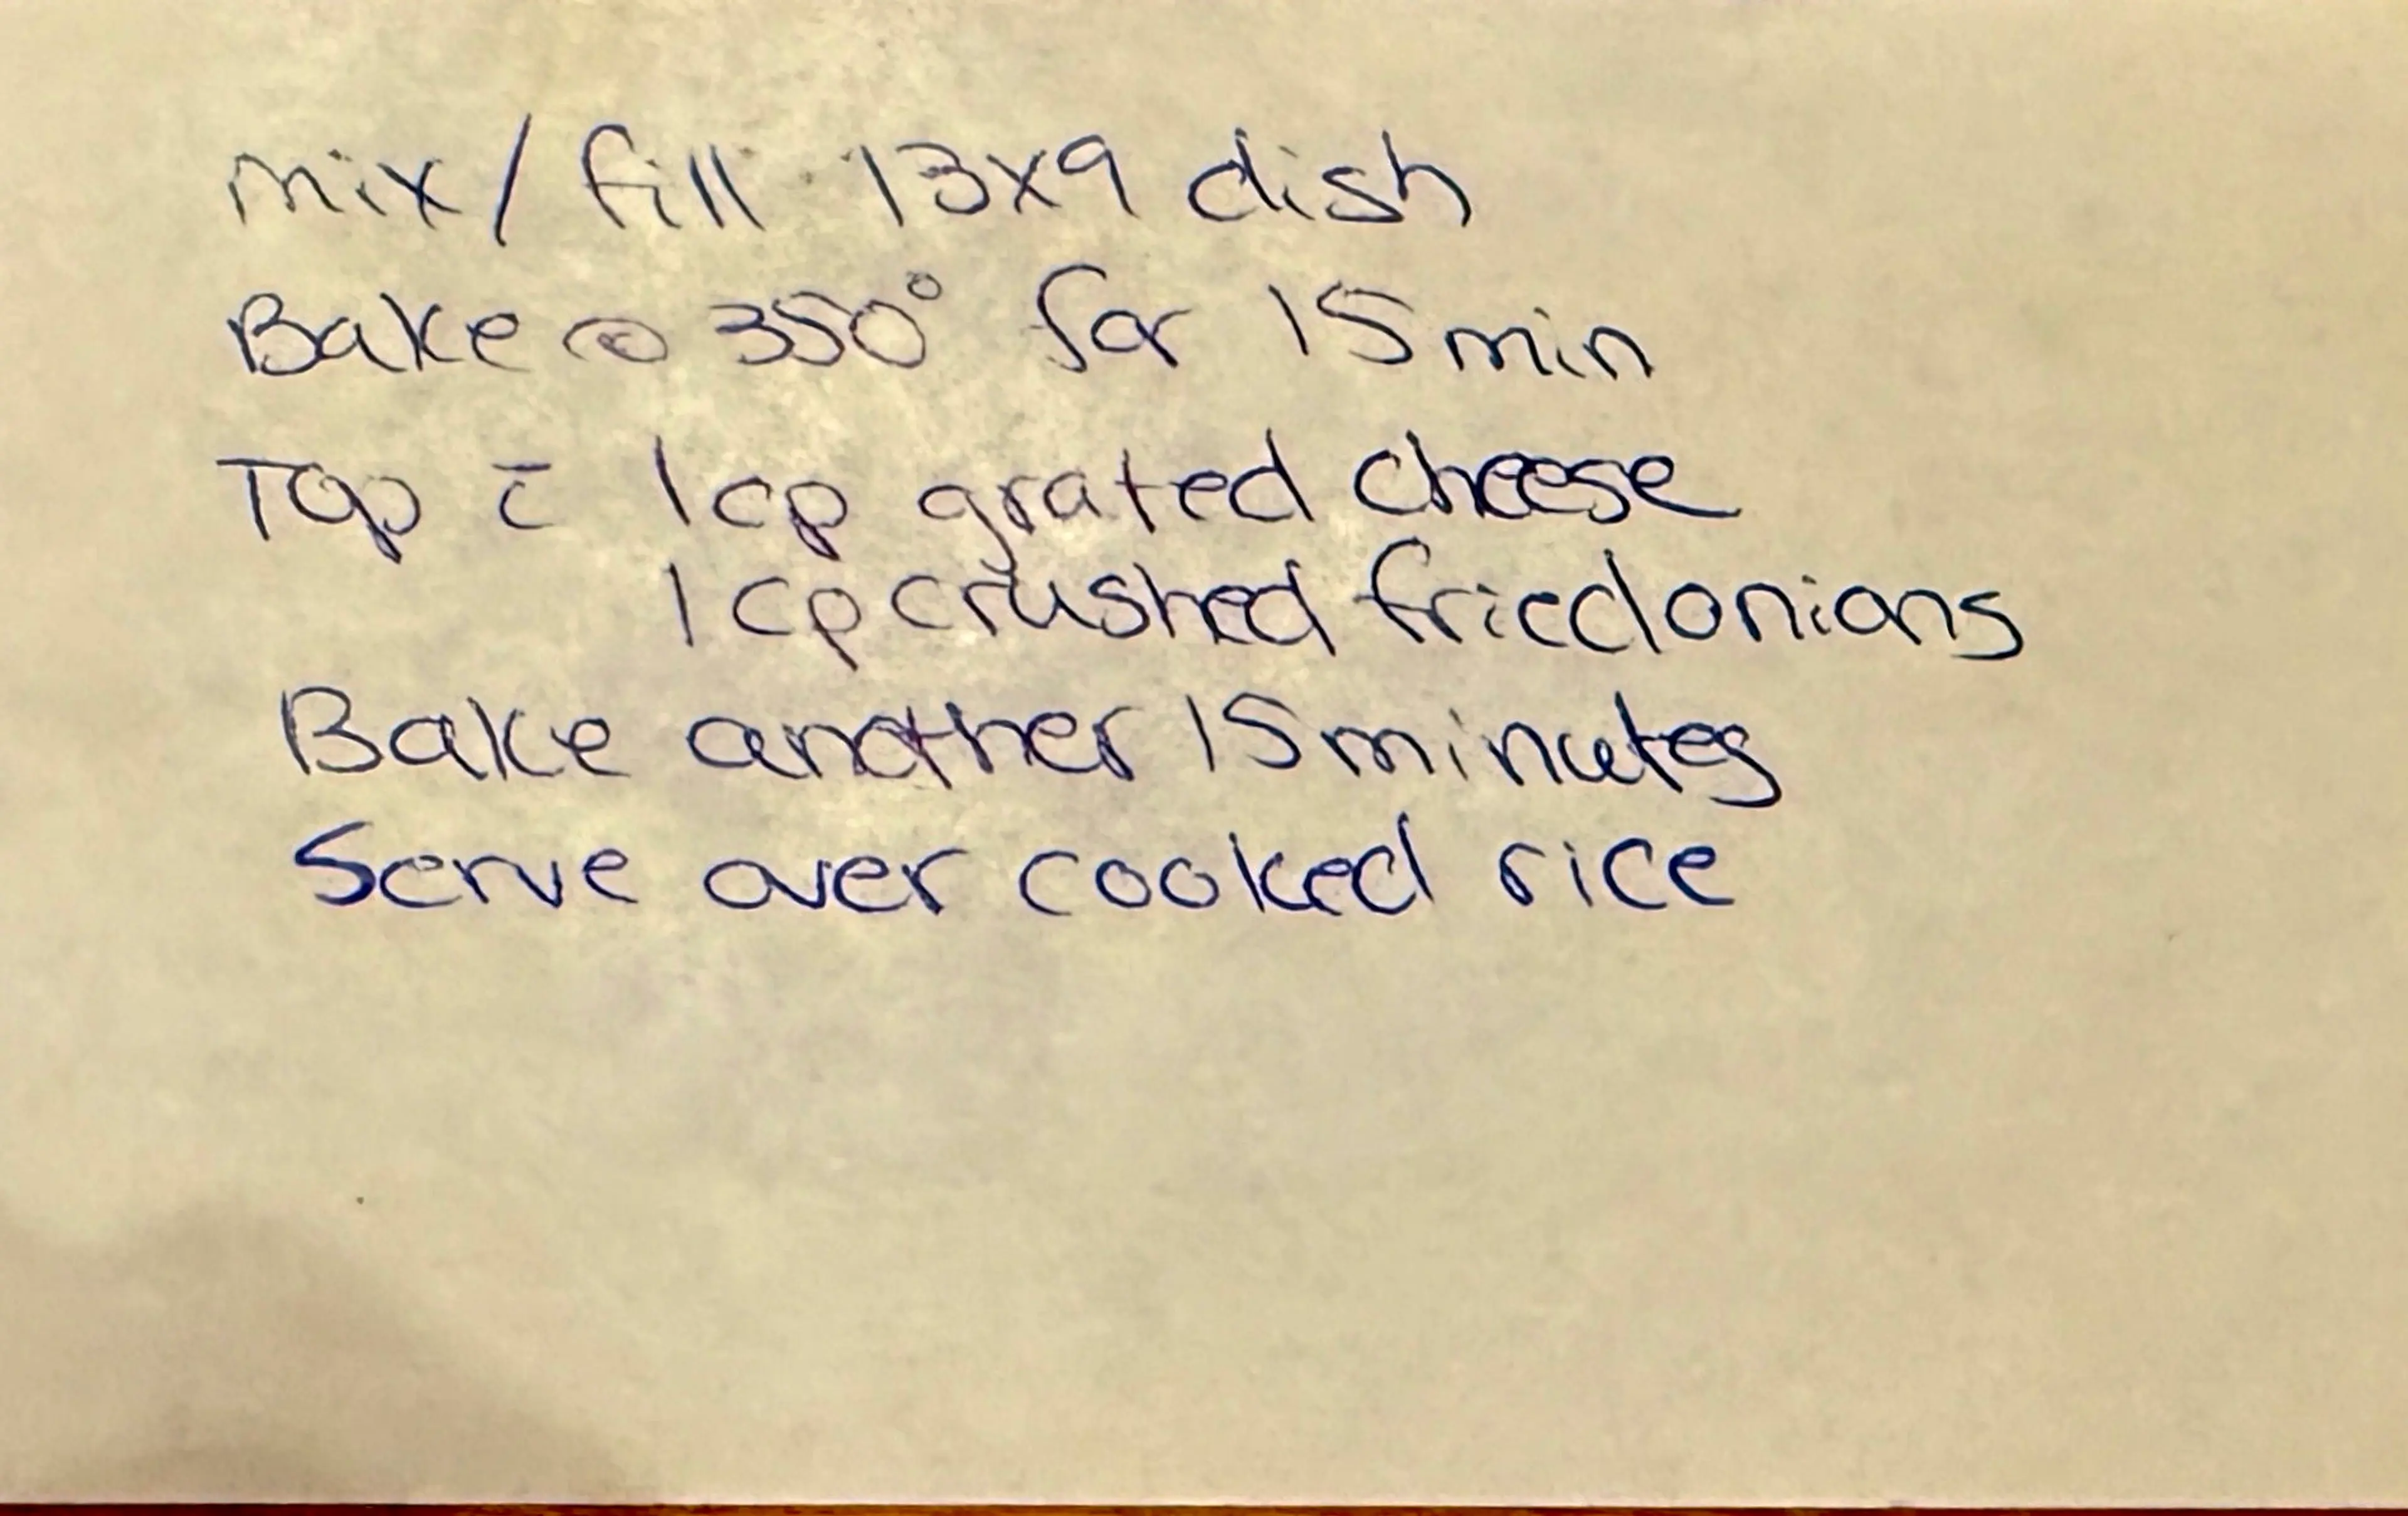 mix / fill 13x9 dish
Bake @ 350° for 15 min
Top c̄ 1 cp grated cheese
1 cp crushed fried onions
Bake another 15 minutes
Serve over cooked rice